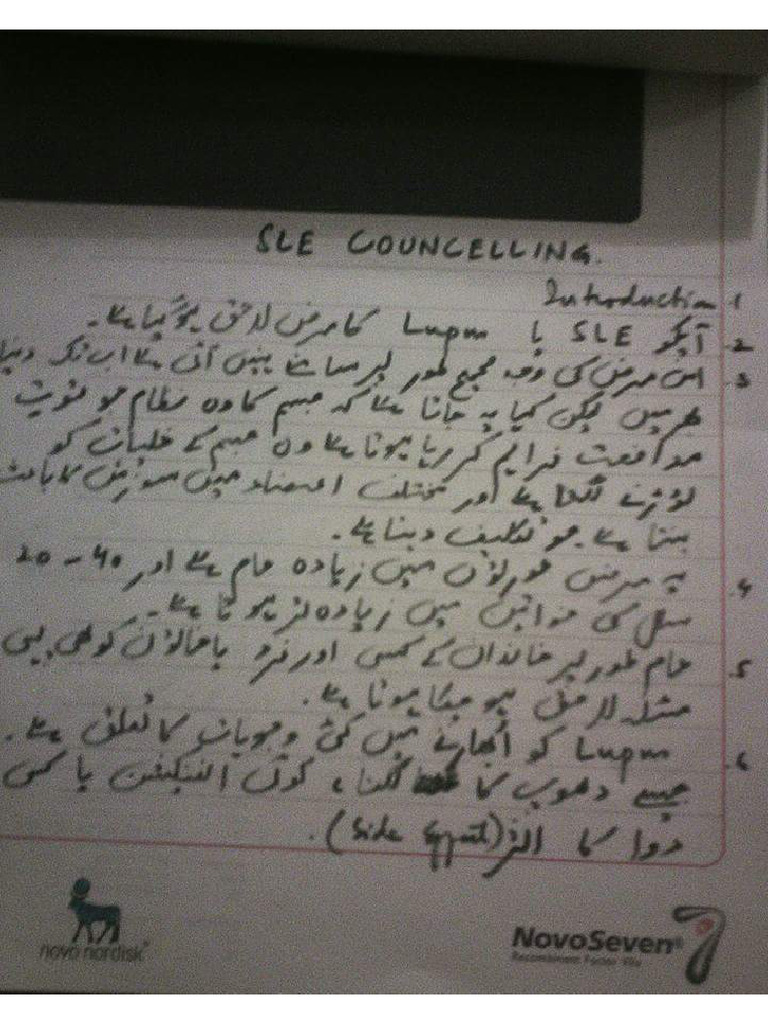 SLE COUNCELLING.
1 Introduction
2. آپکو SLE یا Lupus کا مرض لاحق ہو گیا ہے۔
3. اس مرض کی وجہ صحیح طور پر سامنے نہیں آئی ہے اب تک دنیا
بھر میں لیکن کہا یہ جاتا ہے کہ جسم کا وہ نظام جو قوت
مدافعت فراہم کر رہا ہوتا ہے وہ جسم کے خلیات کو
توڑنے لگتا ہے اور مختلف اعضاء میں سوزش کا باعث
بنتا ہے۔ جو تکلیف دیتا ہے۔
4. یہ مرض عورتوں میں زیادہ عام ہے اور 40 - 20
سال کی خواتین میں زیادہ تر ہوتا ہے۔
5. عام طور پر خاندان کے کسی اور فرد یا خاتون کو بھی یہی
مسئلہ لاحق ہو چکا ہوتا ہے۔
6. Lupus کو ابھارنے میں کئی وجوہات کا تعلق ہے۔
جیسے دھوپ کا لگنا، کوئی انفیکشن یا کسی
دوا کا اثر (Side Effect)۔
novo nordisk®
NovoSeven®
Recombinant Factor VIIa